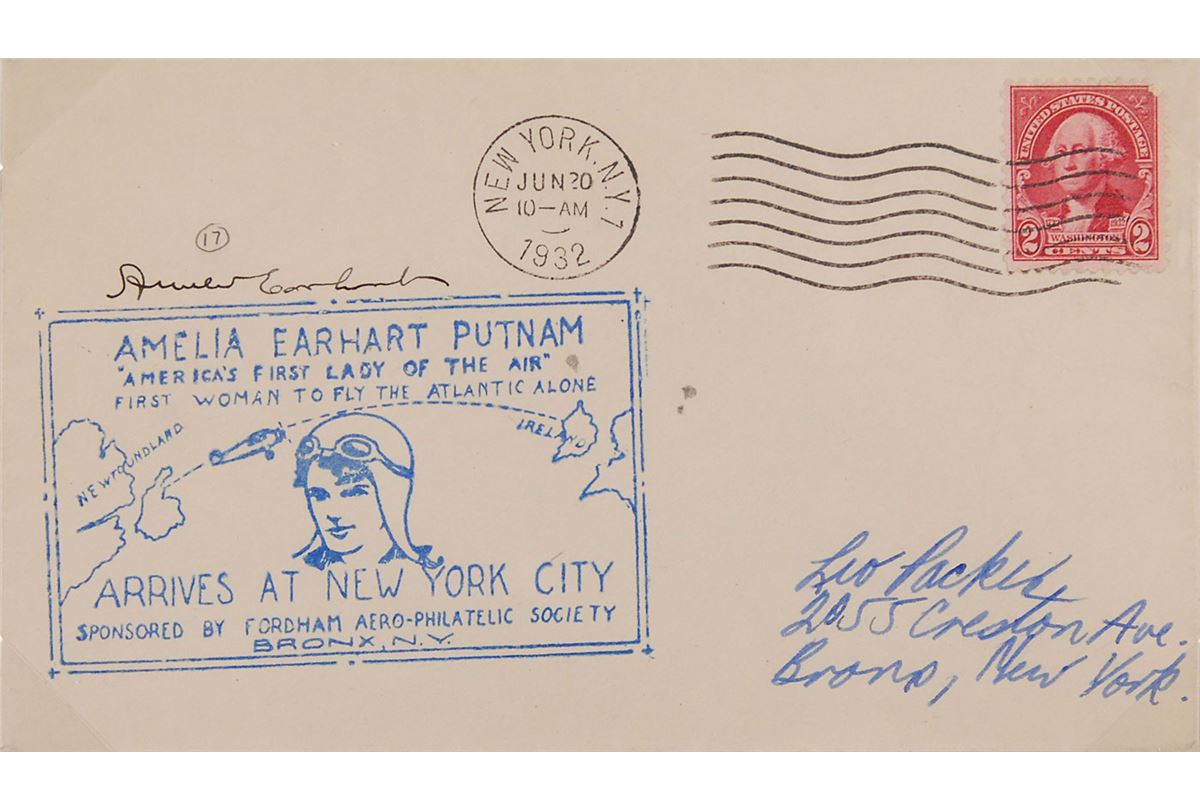 NEW YORK, N.Y. 7
JUN 20
10-AM
1932
UNITED STATES POSTAGE
2 WASHINGTON 2
CENTS
17
Amelia Earhart
AMELIA EARHART PUTNAM
"AMERICA'S FIRST LADY OF THE AIR"
FIRST WOMAN TO FLY THE ATLANTIC ALONE
NEWFOUNDLAND
IRELAND
ARRIVES AT NEW YORK CITY
SPONSORED BY FORDHAM AERO-PHILATELIC SOCIETY
BRONX, N.Y.
Leo Packer,
2055 Creston Ave.
Bronx, New York.